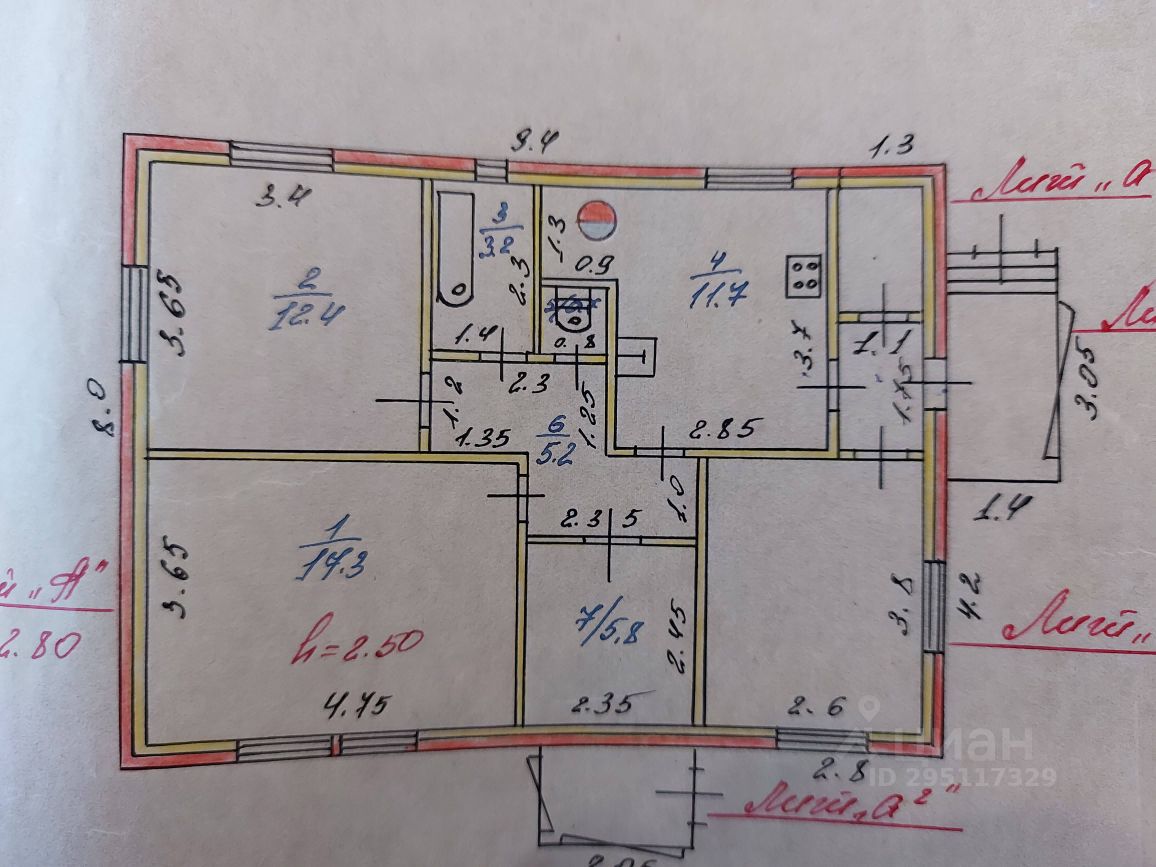 9.4
1.3
3.4
3
3.2
1.3
0.9
4
11.7
2
12.4
3.65
2.3
1.4
0.8
3.7
1.1
1.75
3.05
8.0
1.2
2.3
1.35
6
5.2
1.25
2.85
1.4
1
17.3
3.65
2.35
1.0
"А"
2.80
h=2.50
7/5,8
2.45
3.8
4.2
4.75
2.35
2.6
2.8
циан
ID 295117329
"а²"